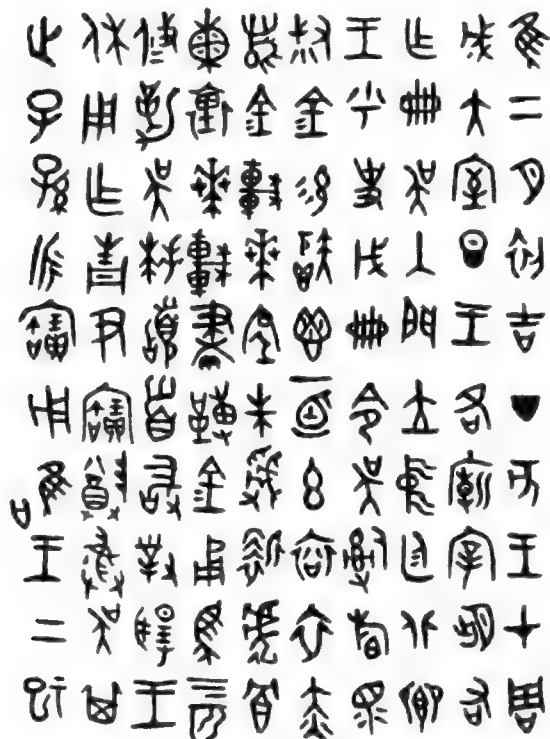 隹二月初吉丁亥王才周
成大室旦王各廟宰朏右
乍冊吳入門立中廷北鄉
王乎史戊冊令吳𤔲㫃眔
叔金易秬鬯一卣玄袞衣赤
舄金車𠦪朱虢靳虎冪
熏裏𠦪較畫轉金甬馬四匹
攸勒吳拜稽首敢對揚王
休用乍青尹寶尊彝吳其
世子孫永寶用唯王二祀